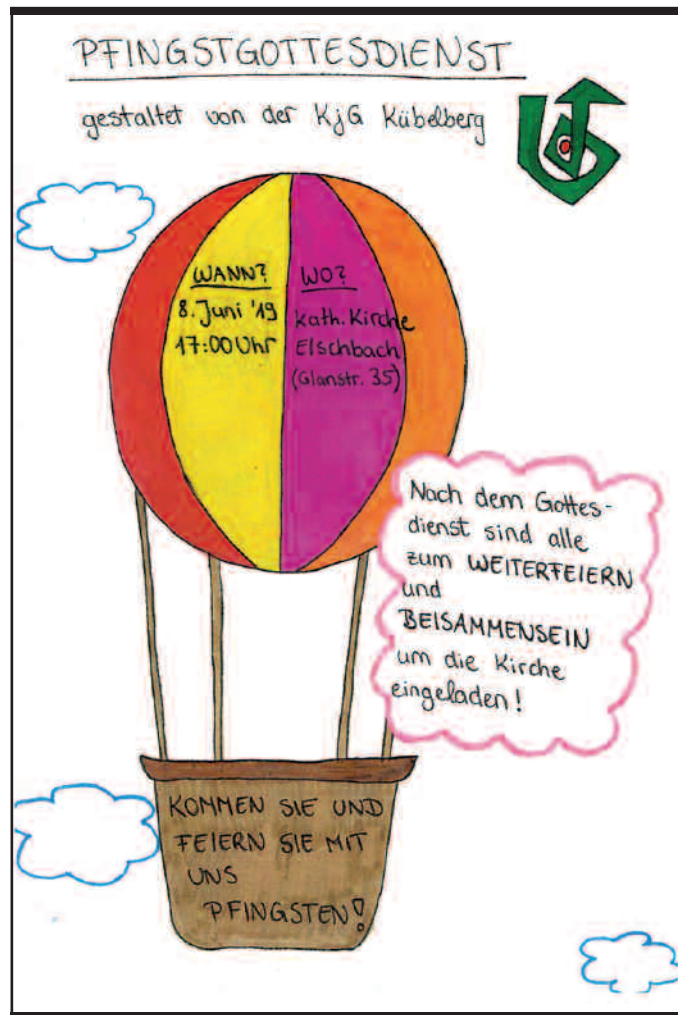 PFINGSTGOTTESDIENST
gestaltet von der KjG Kübelberg
WANN?
8. Juni '19
17:00 Uhr
WO?
kath. Kirche
Elschbach
(Glanstr. 35)
Nach dem Gottes-
dienst sind alle
zum WEITERFEIERN
und
BEISAMMENSEIN
um die Kirche
eingeladen!
KOMMEN SIE UND
FEIERN SIE MIT
UNS
PFINGSTEN!